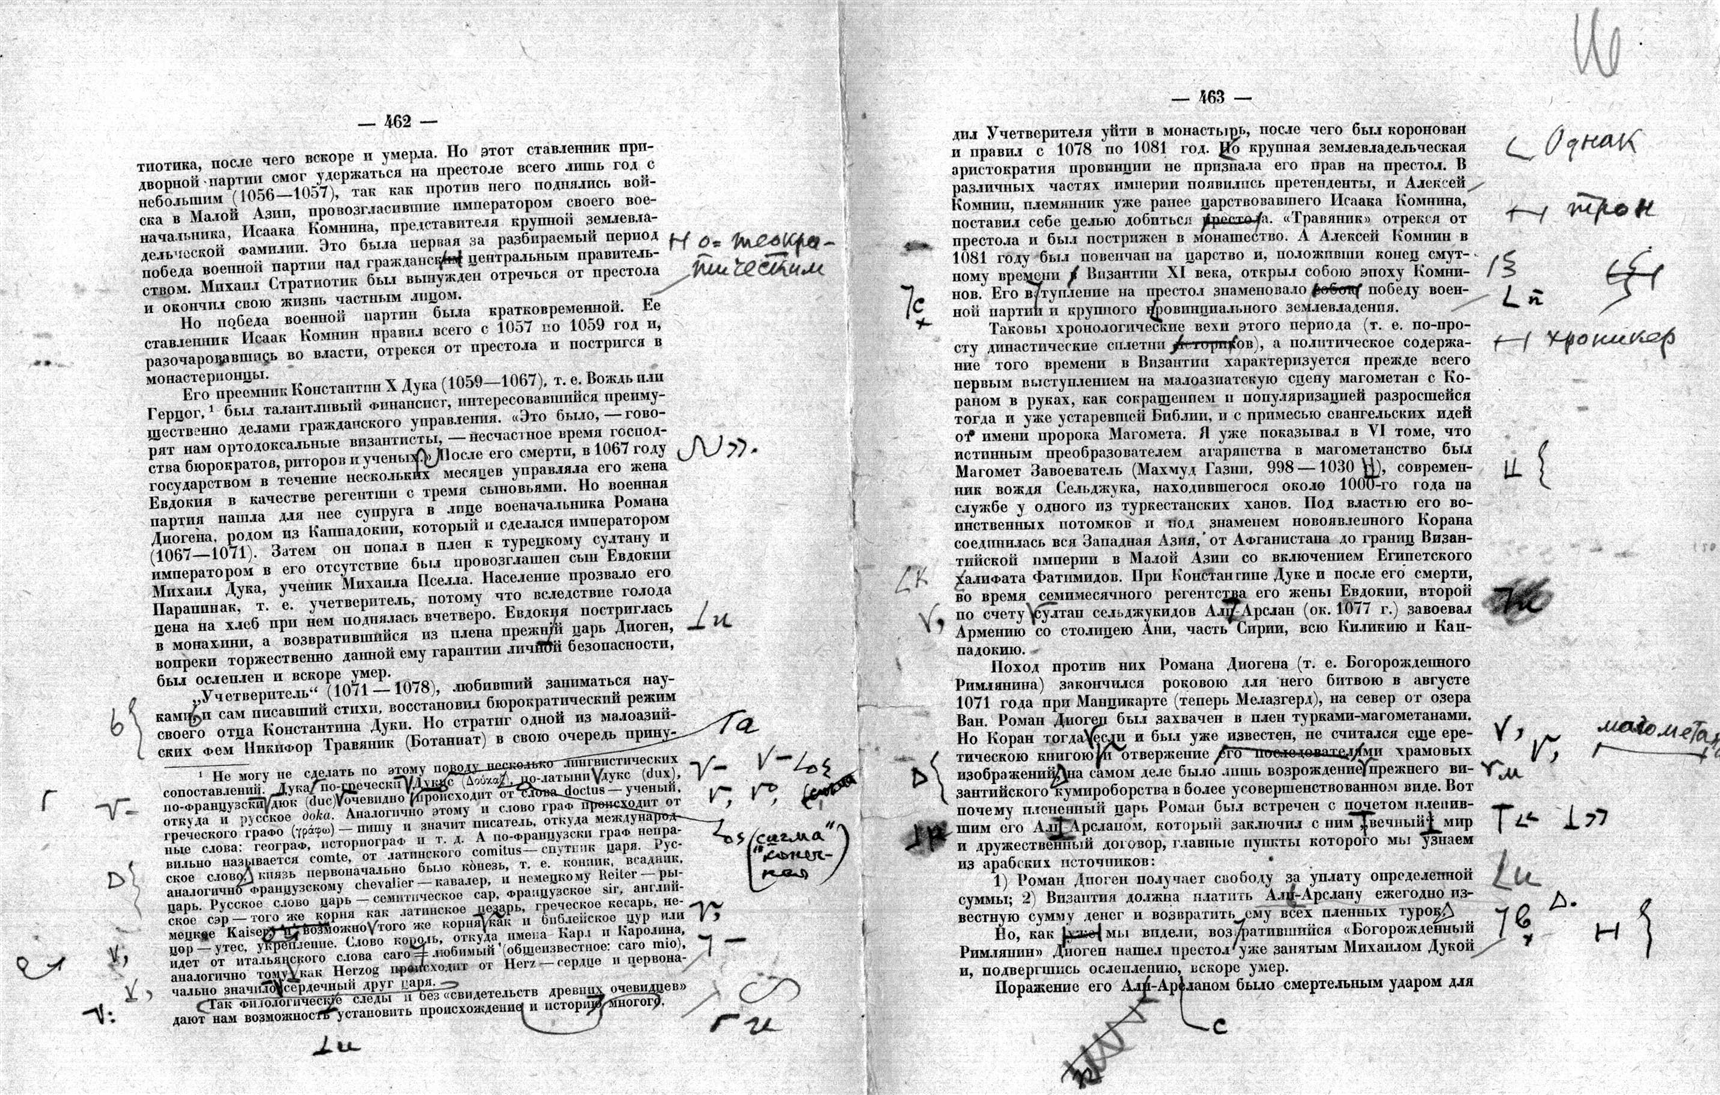 — 462 —
тиотика, после чего вскоре и умерла. Но этот ставленник при-
дворной партии смог удержаться на престоле всего лишь год с
небольшим (1056—1057), так как против него поднялись вой-
ска в Малой Азии, провозгласившие императором своего вое-
начальника, Исаака Комнина, представителя крупной землевла-
дельческой фамилии. Это была первая за разбираемый период
победа военной партии над гражданским центральным правитель-
ством. Михаил Стратиотик был вынужден отречься от престола
и окончил свою жизнь частным лицом.
Но победа военной партии была кратковременной. Ее
ставленник Исаак Комнин правил всего с 1057 по 1059 год и,
разочаровавшись во власти, отрекся от престола и постригся в
монастерионцы.
Его преемник Константин X Дука (1059—1067), т. е. Вождь или
Герцог, ¹ был талантливый финансист, интересовавшийся преиму-
щественно делами гражданского управления. «Это было, — гово-
рят нам ортодоксальные византисты, — несчастное время господ-
ства бюрократов, риторов и ученых.» После его смерти, в 1067 году
государством в течение нескольких месяцев управляла его жена
Евдокия в качестве регентши с тремя сыновьями. Но военная
партия нашла для нее супруга в лице военачальника Романа
Диогена, родом из Каппадокии, который и сделался императором
(1067—1071). Затем он попал в плен к турецкому султану и
императором в его отсутствие был провозглашен сын Евдокии
Михаил Дука, ученик Михаила Пселла. Население прозвало его
Парапинак, т. е. учетверитель, потому что вследствие голода
цена на хлеб при нем поднялась вчетверо. Евдокия постриглась
в монахини, а возвратившийся из плена прежний царь Диоген,
вопреки торжественно данной ему гарантии личной безопасности,
был ослеплен и вскоре умер.
„Учетверитель“ (1071 — 1078), любивший заниматься нау-
ками и сам писавший стихи, восстановил бюрократический режим
своего отца Константина Дуки. Но стратиг одной из малоазий-
ских фем Никифор Травяник (Ботаниат) в свою очередь прину-
¹ Не могу не сделать по этому поводу несколько лингвистических
сопоставлений. Дука по-гречески Дукас (Δούκας), по-латыни дукс (dux),
по-французски дюк (duc) очевидно происходит от слова doctus — ученый,
откуда и русское дока. Аналогично этому и слово граф происходит от
греческого графо (γράφω) — пишу и значит писатель, откуда международ-
ные слова: географ, историограф и т. д. А по-французски граф непра-
вильно называется comte, от латинского comitus — спутник царя. Рус-
ское слово князь первоначально было конезь, т. е. конник, всадник,
аналогично французскому chevalier — кавалер, и немецкому Reiter — ры-
царь. Русское слово царь — семитическое сар, французское sir, англий-
ское сэр — того же корня как латинское цезарь, греческое кесарь, не-
мецкое Kaiser и возможно того же корня как и библейское цур или
цор — утес, укрепление. Слово король, откуда имена Карл и Каролина,
идет от итальянского слова caro = любимый (общеизвестное: caro mio),
аналогично тому как Herzog происходит от Herz — сердце и первона-
чально значило сердечный друг царя.
Так филологические следы и без «свидетельств древних очевидцев»
дают нам возможность установить происхождение и историю многого.
о= теокра-
тическим
».
та
(сигма
"конеч-
ная
— 463 —
дил Учетверителя уйти в монастырь, после чего был коронован
и правил с 1078 по 1081 год. Но крупная землевладельческая
аристократия провинции не признала его прав на престол. В
различных частях империи появились претенденты, и Алексей
Комнин, племянник уже ранее царствовавшего Исаака Комнина,
поставил себе целью добиться престола. «Травяник» отрекся от
престола и был пострижен в монашество. А Алексей Комнин в
1081 году был повенчан на царство и, положивши конец смут-
ному времени в Византии XI века, открыл собою эпоху Комни-
нов. Его вступление на престол знаменовало собою победу воен-
ной партии и крупного провинциального землевладения.
Таковы хронологические вехи этого периода (т. е. по-про-
сту династические сплетни историков), а политическое содержа-
ние того времени в Византии характеризуется прежде всего
первым выступлением на малоазиатскую сцену магометан с Ко-
раном в руках, как сокращением и популяризацией разросшейся
тогда и уже устаревшей Библии, и с примесью евангельских идей
от имени пророка Магомета. Я уже показывал в VI томе, что
истинным преобразователем агарянства в магометанство был
Магомет Завоеватель (Махмуд Газни, 998 — 1030 ), современ-
ник вождя Сельджука, находившегося около 1000-го года на
службе у одного из туркестанских ханов. Под властью его во-
инственных потомков и под знаменем новоявленного Корана
соединилась вся Западная Азия, от Афганистана до границ Визан-
тийской империи в Малой Азии со включением Египетского
халифата Фатимидов. При Константине Дуке и после его смерти,
во время семимесячного регентства его жены Евдокии, второй
по счету султан сельджукидов Алп-Арслан (ок. 1077 г.) завоевал
Армению со столицею Ани, часть Сирии, всю Киликию и Кап-
падокию.
Поход против них Романа Диогена (т. е. Богорожденного
Римлянина) закончился роковою для него битвою в августе
1071 года при Манцикарте (теперь Мелазгерд), на север от озера
Ван. Роман Диоген был захвачен в плен турками-магометанами.
Но Коран тогда если и был уже известен, не считался еще ере-
тическою книгою и отвержение его последователями храмовых
изображений на самом деле было лишь возрождение прежнего ви-
зантийского кумироборства в более усовершенствованном виде. Вот
почему плененный царь Роман был встречен с почетом пленив-
шим его Алп-Арсланом, который заключил с ним вечный мир
и дружественный договор, главные пункты которого мы узнаем
из арабских источников:
1) Роман Диоген получает свободу за уплату определенной
суммы; 2) Византия должна платить Алп-Арслану ежегодно из-
вестную сумму денег и возвратить ему всех пленных турок.
Но, как уже мы видели, возвратившийся «Богорожденный
Римлянин» Диоген нашел престол уже занятым Михаилом Дукой
и, подвергшись ослеплению, вскоре умер.
Поражение его Алп-Арсланом было смертельным ударом для
Однак
трон
хроникер